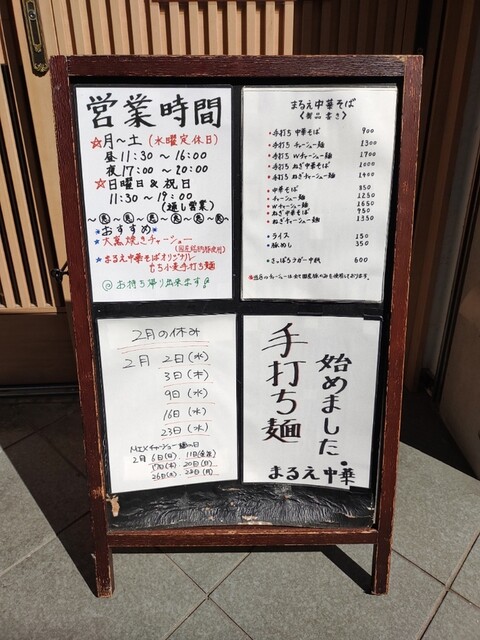 営業時間
☆月～土(水曜定休日)
昼11:30～16:00
夜17:00～20:00
☆日曜日&祝日
11:30～19:00
(通し営業)
*おすすめ*
*大窯焼きチャーシュー
*まるえ中華そばオリジナル
もち小麦手打ち麺
お持ち帰り出来ます
まるえ中華そば
手打ち 中華そば 900
手打ち チャーシュー麺 1300
手打ち Wチャーシュー麺 1700
手打ち ねぎ中華そば 1000
手打ち ねぎチャーシュー麺 1400
中華そば 850
チャーシュー麺 1250
Wチャーシュー麺 1650
ねぎ中華そば 950
ねぎチャーシュー麺 1350
ライス 150
豚めし 350
さっぽろラガー中瓶 600
2月の休み
2月 2日(水)
3日(木)
9日(水)
16日(水)
23日(水)
MIXチャーシュー麺の日
2月 6日(日) 11日(金祝)
17日(木) 20日(日)
26日(土)
始めました。
手打ち麺
まるえ中華